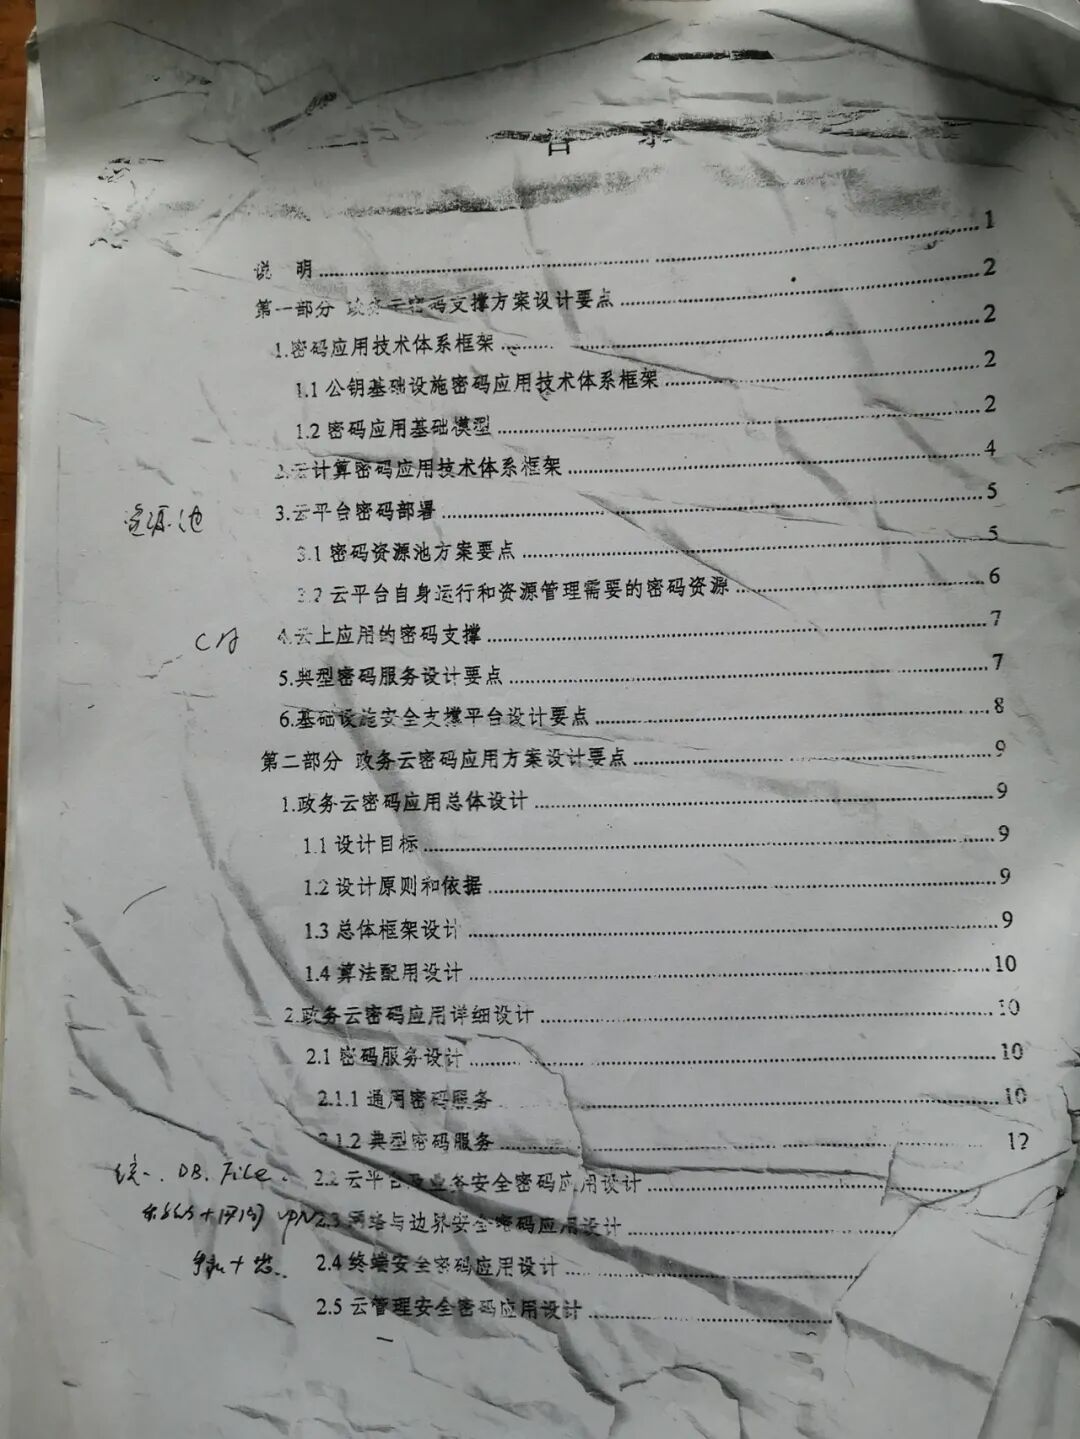 目 录
说 明 1
第一部分 政务云密码支撑方案设计要点 2
1.密码应用技术体系框架 2
1.1 公钥基础设施密码应用技术体系框架 2
1.2 密码应用基础模型 2
2.云计算密码应用技术体系框架 4
资源池 3.云平台密码部署 5
3.1 密码资源池方案要点 5
3.2 云平台自身运行和资源管理需要的密码资源 6
CA 4.云上应用的密码支撑 7
5.典型密码服务设计要点 7
6.基础设施安全支撑平台设计要点 8
第二部分 政务云密码应用方案设计要点 9
1.政务云密码应用总体设计 9
1.1 设计目标 9
1.2 设计原则和依据 9
1.3 总体框架设计 9
1.4 算法配用设计 10
2.政务云密码应用详细设计 10
2.1 密码服务设计 10
2.1.1 通用密码服务 10
2.1.2 典型密码服务 12
统一. DB. File. 2.2 云平台及业务安全密码应用设计
VPN 2.3 网络与边界安全密码应用设计
2.4 终端安全密码应用设计
2.5 云管理安全密码应用设计
一